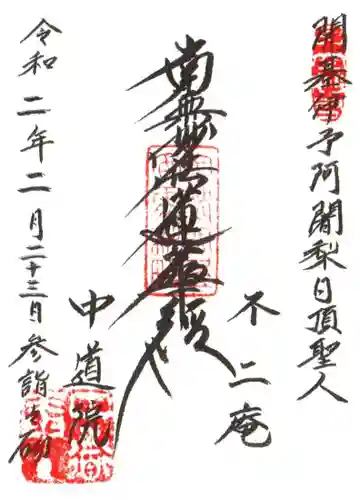 開基伊予阿闍梨日頂聖人
不二庵
南無妙法蓮華経
中道院
令和二年二月二十三日参詣之砌